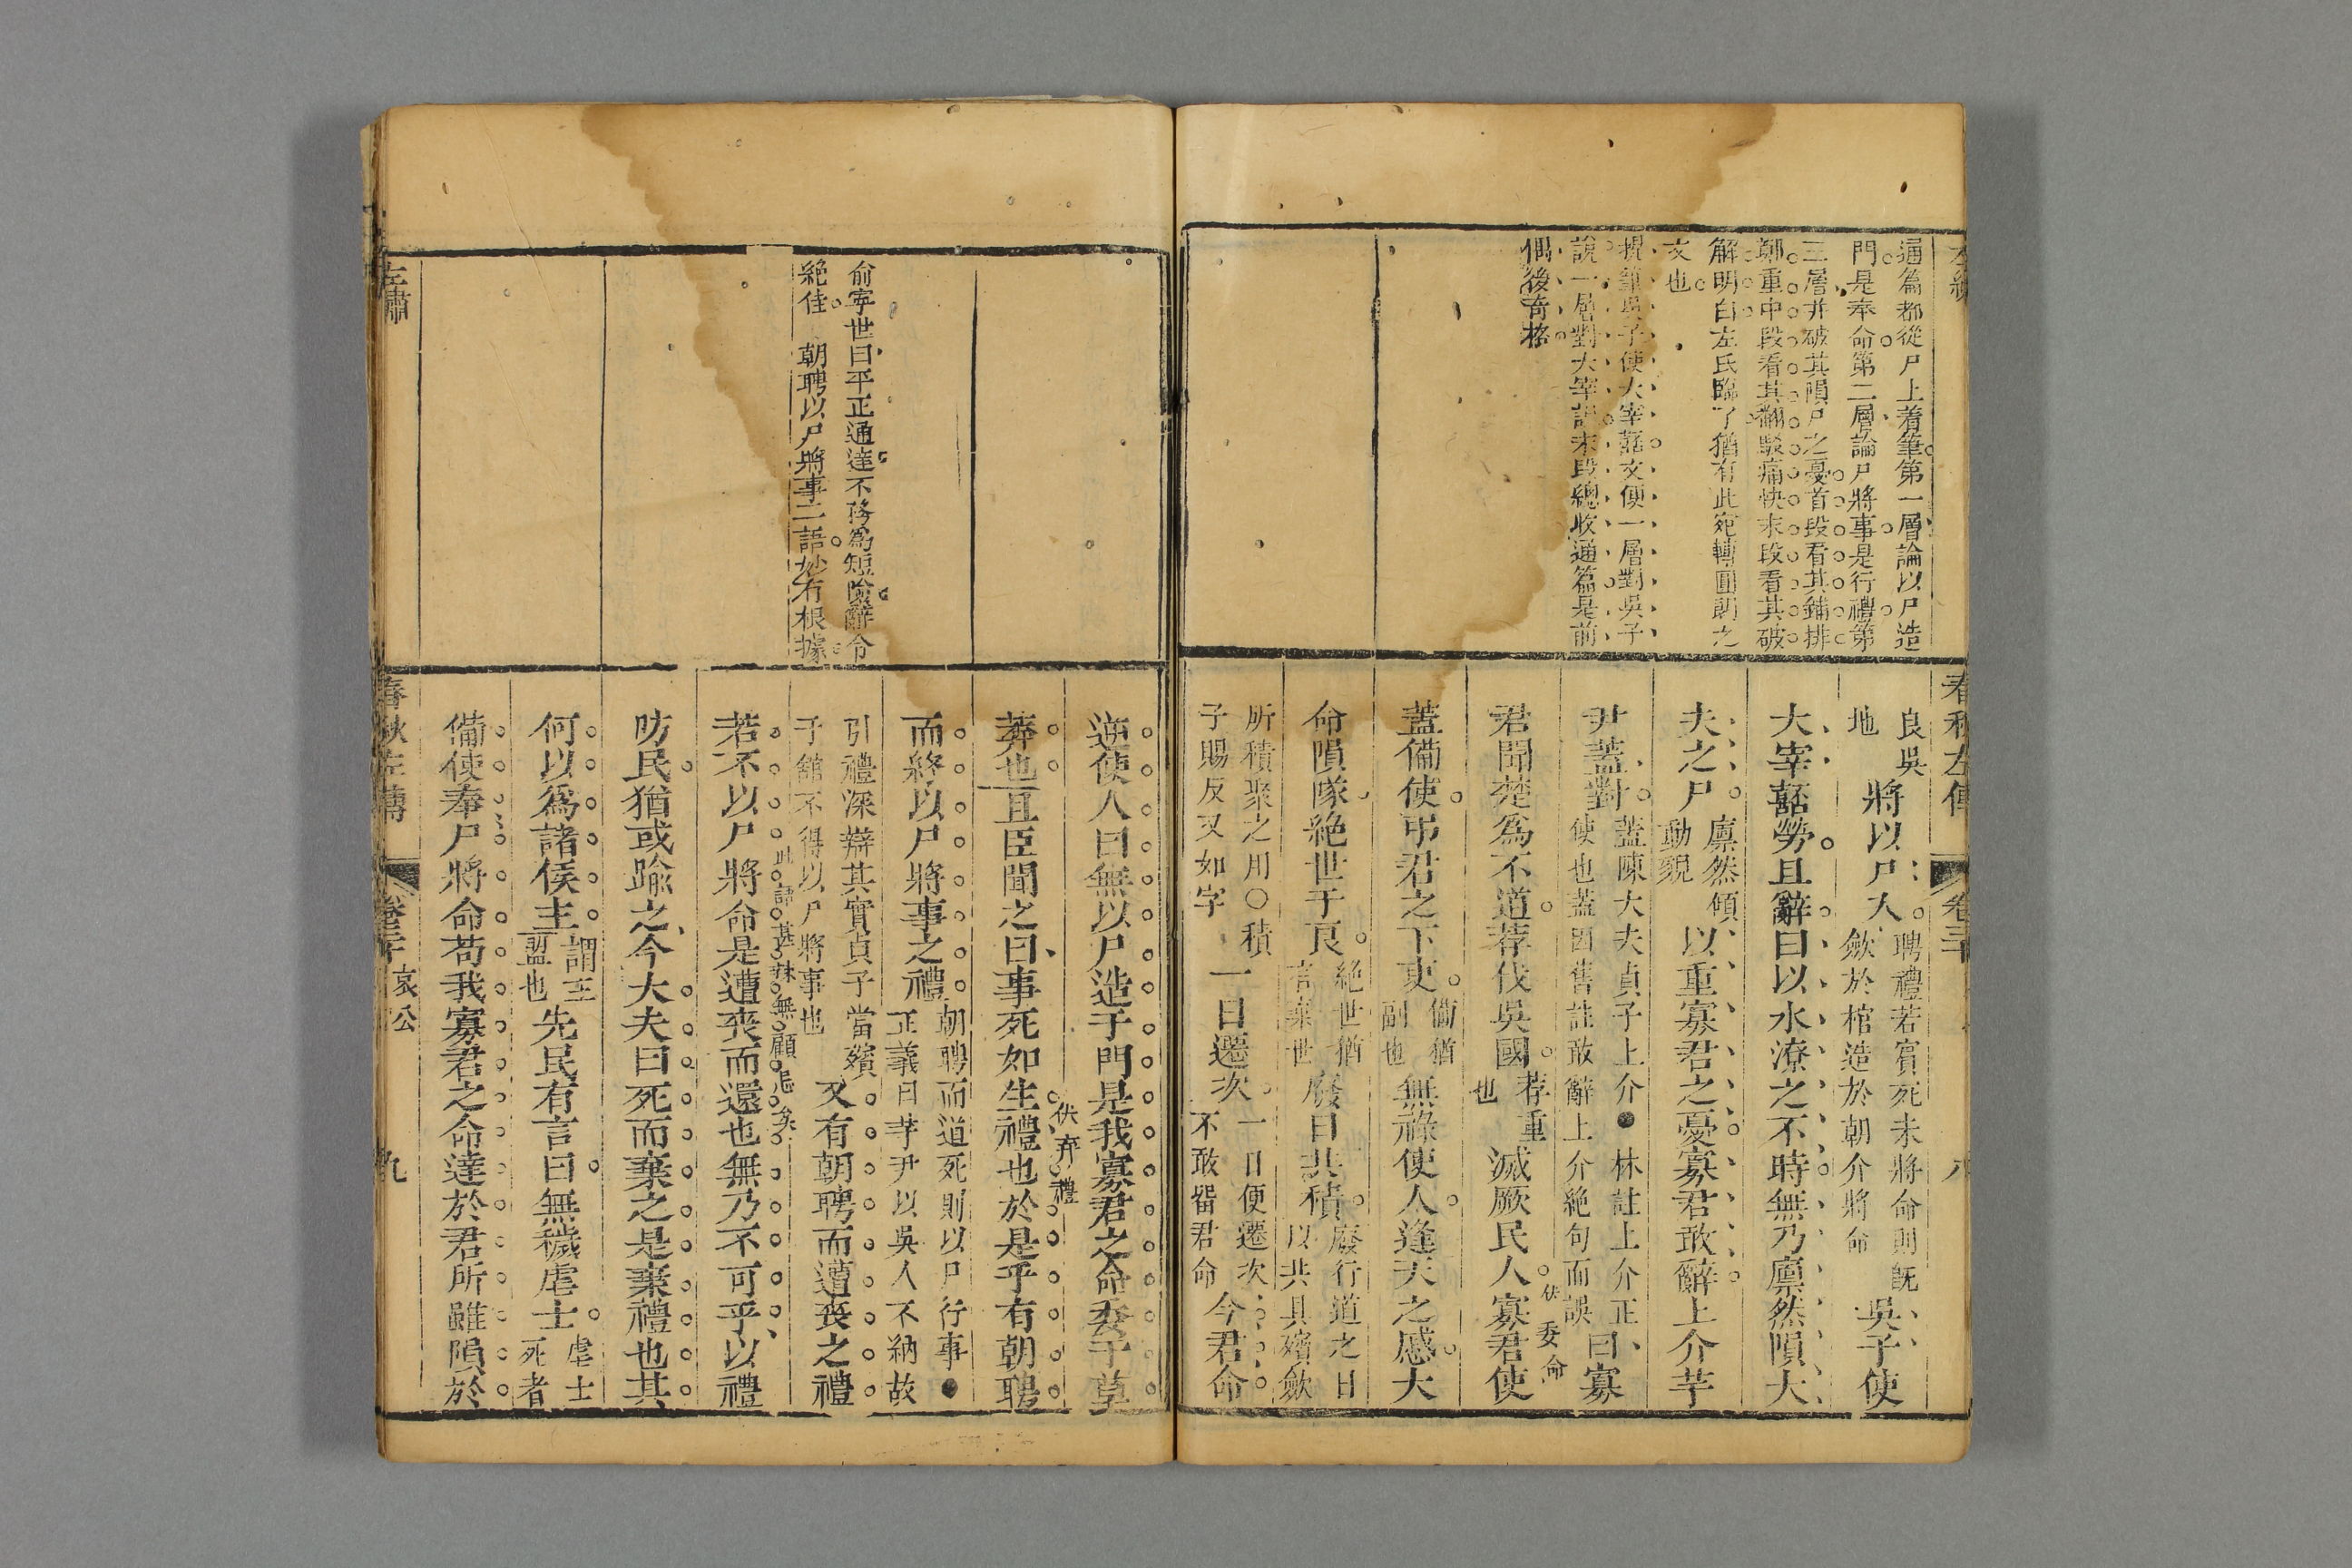 春秋左傳 卷三十 八
通篇都從尸上着筆第一層論以尸造
門是奉命第二層論尸將事是行禮第
三層并破其隕尸之憂首段看其鋪排
鄭重中段看其翻駁痛快末段看其破
解明白左氏臨了猶有此宛轉圓之
文也
吳子使大宰嚭文便一層對吳子
說一層對大宰語末段總收通篇是前
偶後奇格
良吳地將以尸入聘禮若賓死未將命則既斂於棺造於朝介將命吳子使
大宰嚭勞且辭曰以水潦之不時無乃廩然隕大
夫之尸廩然傾動貌以重寡君之憂寡君敢辭上介芋
尹蓋對蓋陳大夫貞子上介●林註上介正使也蓋因舊註敢辭上介絕句而誤曰寡
君聞楚爲不道荐伐吳國荐重也滅厥民人伏委命寡君使
蓋備使弔君之下吏備猶副也無祿使人逢天之慼大
命隕隊絕世于良絕世猶言棄世廢日共積廢行道之日以共具殯斂
所積聚之用○積子賜反又如字一日遷次一日便遷次不敢畱君命今君命
逆使人曰無以尸造于門是我寡君之命委于草
莽也且臣聞之曰事死如生禮也伏弃禮於是乎有朝聘
而終以尸將事之禮朝聘而道死則以尸行事●正義曰芋尹以吳人不納故
引禮深辯其實貞子當殯子館不得以尸將事也又有朝聘而遭喪之禮
若不以尸將命此語甚妹無顧忌矣是遭喪而還也無乃不可乎以禮
防民猶或踰之今大夫曰死而棄之是棄禮也其
何以爲諸侯主謂主盟也先民有言曰無穢虐士虐士死者
備使奉尸將命苟我寡君之命達於君所雖隕於
俞寧世曰平正通達不務爲短險辭令
絕佳 朝聘以尸將事二語妙有根據
左繡
春秋左傳 卷三十 哀公 九